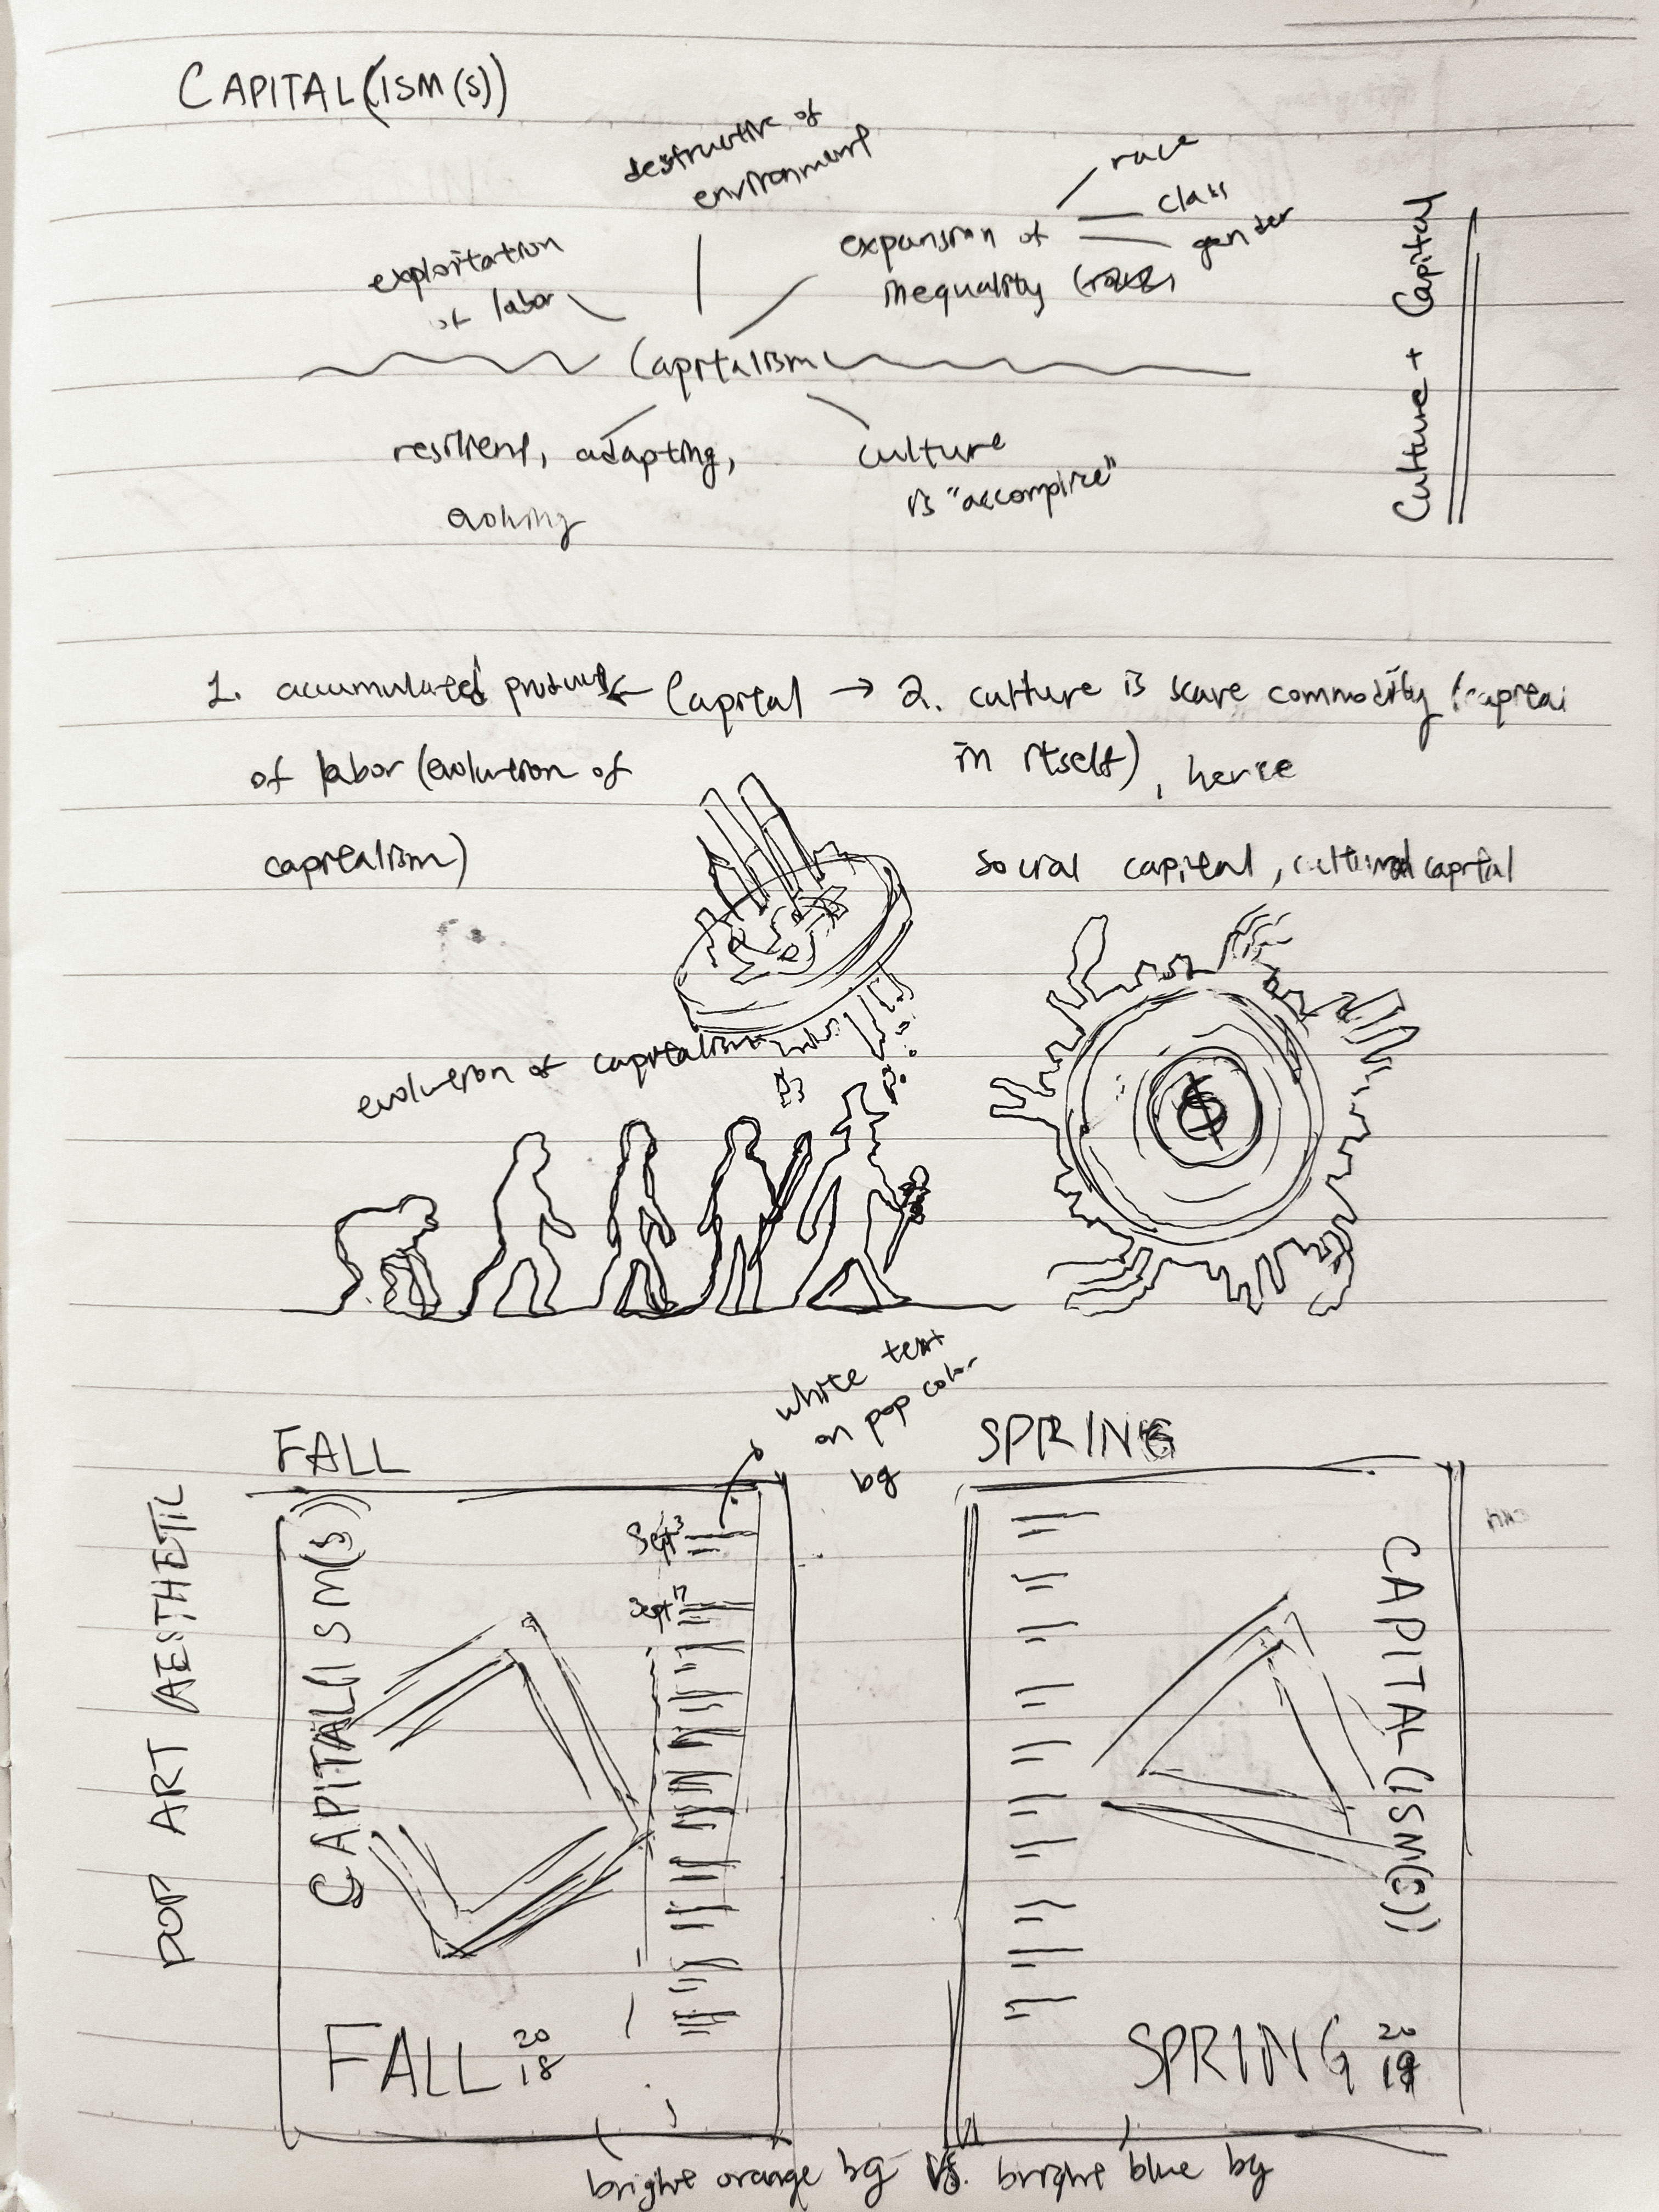 CAPITAL(ISM(S))
destructive of
environment
exploitation
of labor
expansion of
inequality
race
class
gender
Culture + Capital
Capitalism
resilient, adapting,
evolving
culture
is "accomplice"
1. accumulated product ← Capital → 2. culture is scarce commodity (capital
of labor (evolution of
in itself), hence
capitalism)
social capital, cultural capital
evolution of capitalism
$
white text
on pop color
bg
FALL
SPRING
POP ART AESTHETIC
CAPITAL(ISM(S))
Sept 3
Sept 17
FALL 20
18
CAPITAL(ISM(S))
SPRING 20
19
bright orange bg vs. bright blue bg